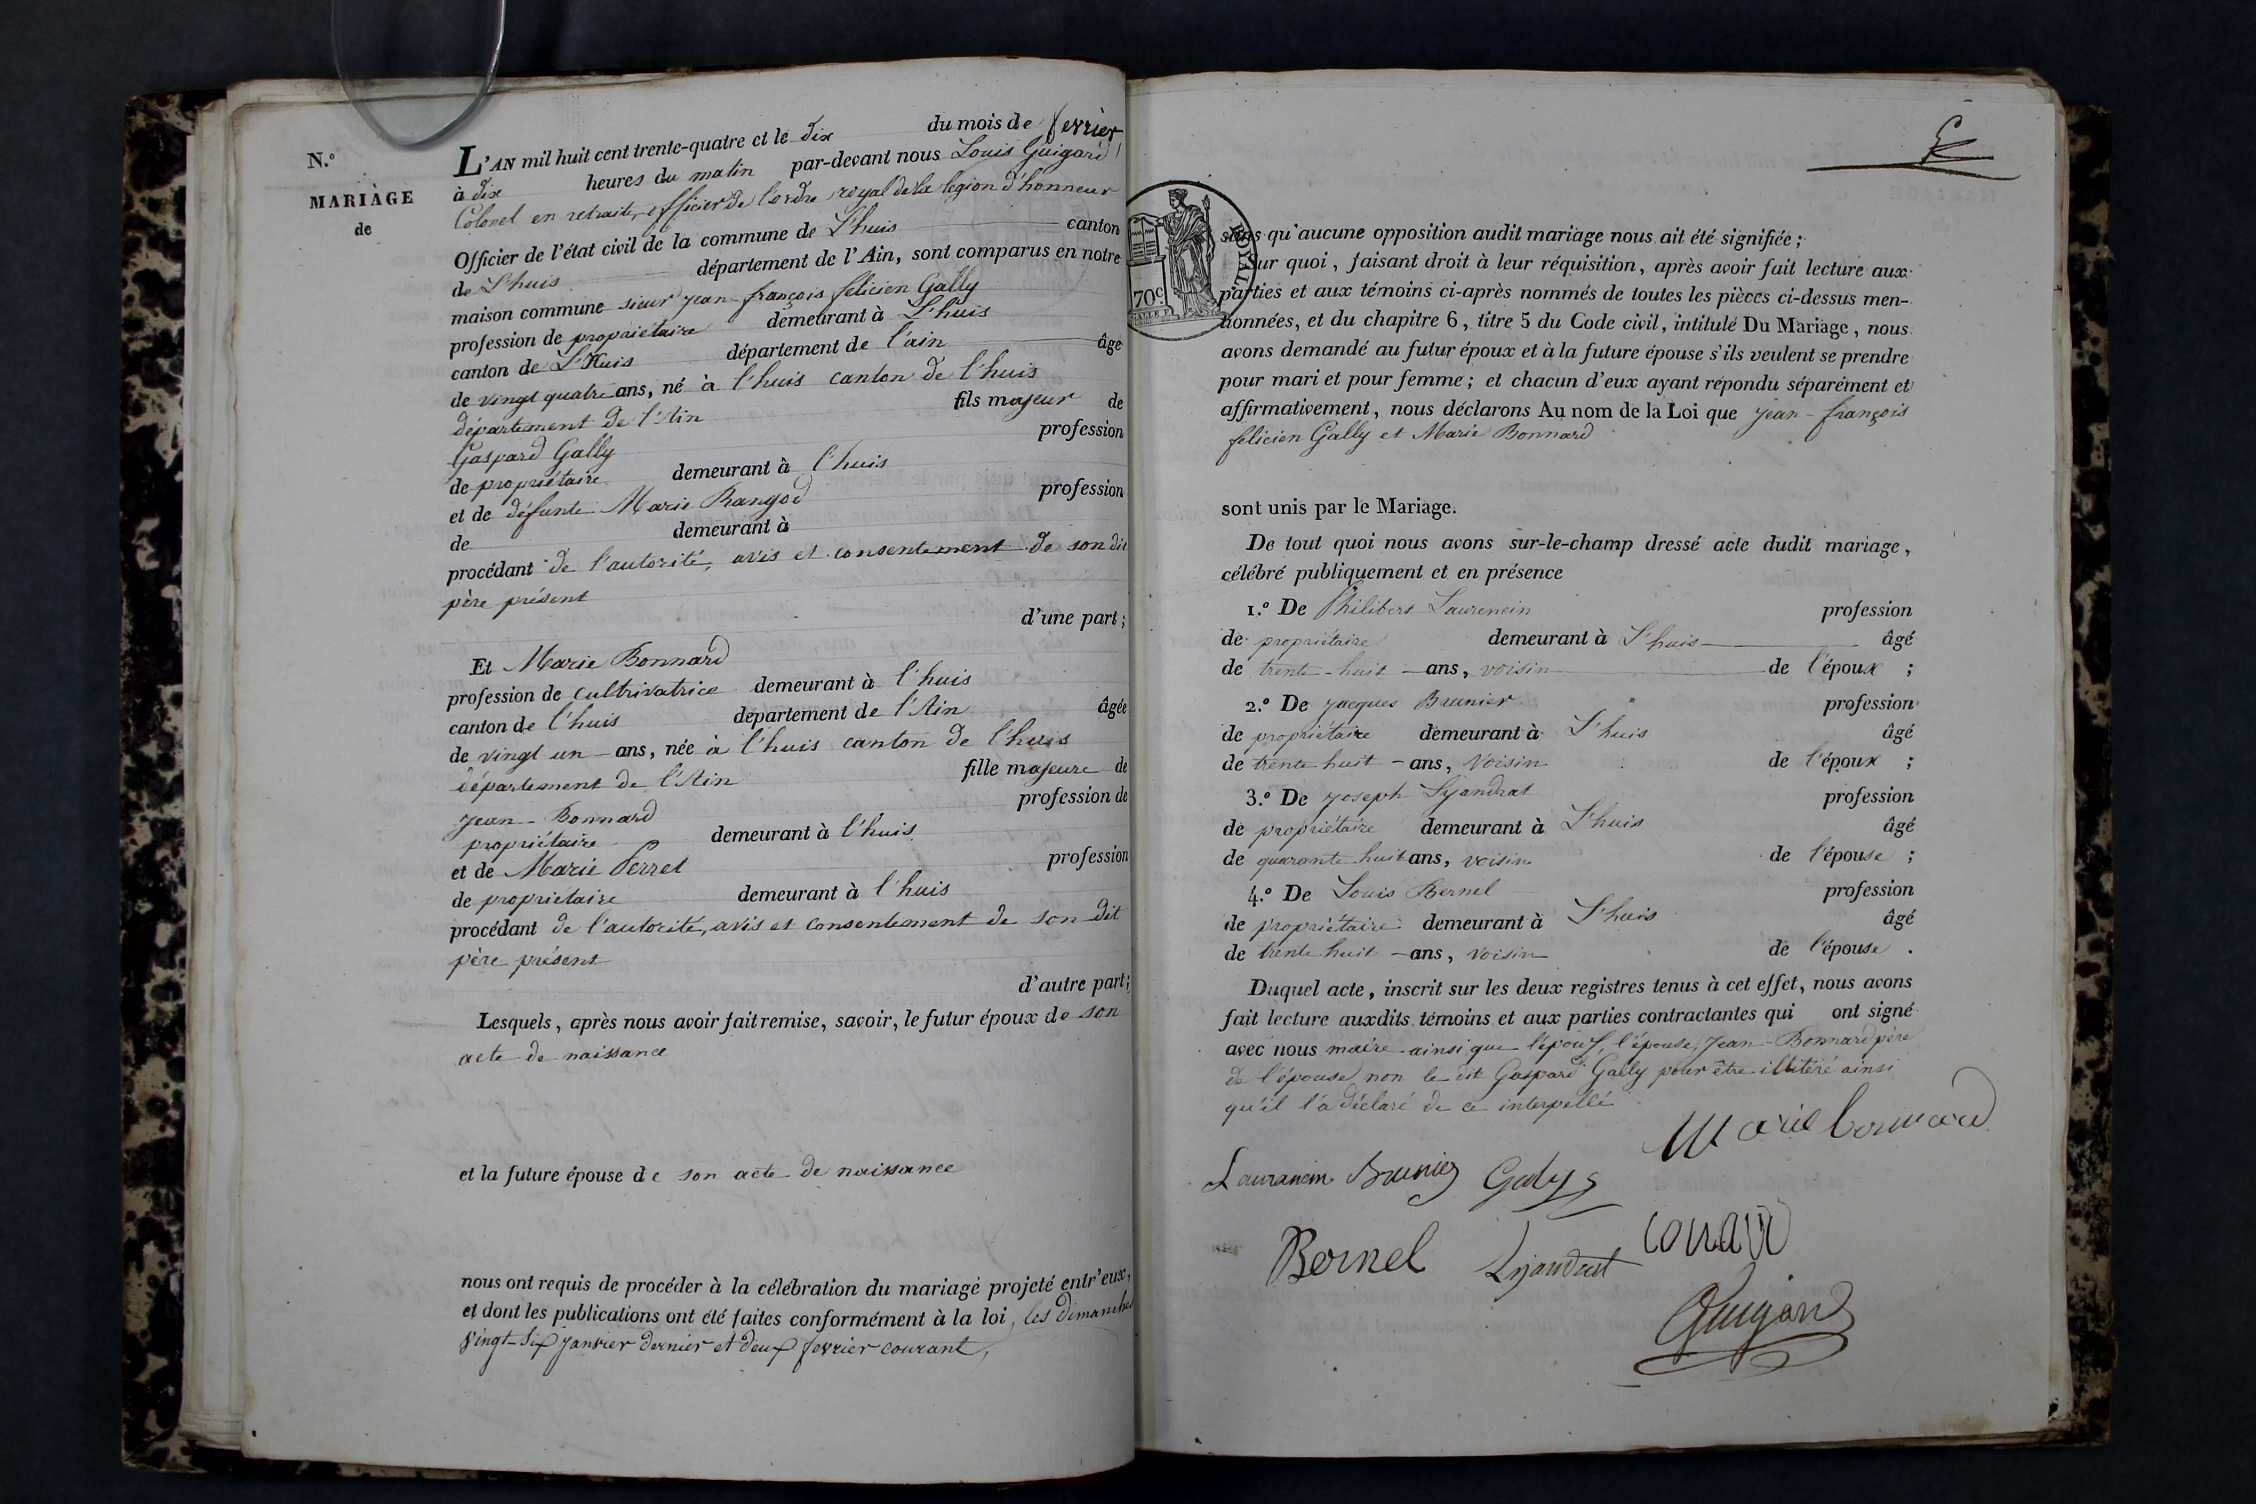 N.º
MARIÀGE
de
L'AN mil huit cent trente-quatre et le dix du mois de fevrier
à dix heures du matin par-devant nous Louis Guigard
Colonel en retraite, officier de l'ordre royal de la legion d'honneur
Officier de l'état civil de la commune de L'huis canton
de L'huis département de l'Ain, sont comparus en notre
maison commune sieur jean-françois felicien Gally
profession de propriétaire demeurant à L'huis
canton de L'Huis département de l'ain âgé
de vingt quatre ans, né à l'huis canton de l'huis
département de l'Ain fils majeur de
Gaspard Gally profession
de propriétaire demeurant à l'huis
et de défunte Marie Rangod profession
de demeurant à
procédant de l'autorité, avis et consentement de son dit
père présent
d'une part;
Et Marie Bonnard
profession de cultrivatrice demeurant à l'huis
canton de l'huis département de l'Ain âgée
de vingt un ans, née à l'huis canton de l'huis
département de l'Ain fille majeure de
Jean-Bonnard profession de
propriétaire demeurant à l'huis
et de Marie Perret profession
de propriétaire demeurant à l'huis
procédant de l'autorité, avis et consentement de son dit
père présent
d'autre part;
Lesquels, après nous avoir fait remise, savoir, le futur époux de son
acte de naissance
et la future épouse de son acte de naissance
nous ont requis de procéder à la célébration du mariage projeté entr'eux,
et dont les publications ont été faites conformément à la loi, les dimanches
vingt-six janvier dernier et deux fevrier courant,
ROYAL
70c
sans qu'aucune opposition audit mariage nous ait été signifiée;
Sur quoi, faisant droit à leur réquisition, après avoir fait lecture aux
parties et aux témoins ci-après nommés de toutes les pièces ci-dessus men-
tionnées, et du chapitre 6, titre 5 du Code civil, intitulé Du Mariage, nous
avons demandé au futur époux et à la future épouse s'ils veulent se prendre
pour mari et pour femme; et chacun d'eux ayant répondu séparément et
affirmativement, nous déclarons Au nom de la Loi que jean-françois
felicien Gally et Marie Bonnard
sont unis par le Mariage.
De tout quoi nous avons sur-le-champ dressé acte dudit mariage,
célébré publiquement et en présence
1.º De Philibert Laurencin profession
de propriétaire demeurant à L'huis âgé
de trente-huit ans, voisin de l'époux ;
2.º De jacques Brunier profession
de propriétaire demeurant à L'huis âgé
de trente huit ans, voisin de l'époux ;
3.º De joseph Lyandrat profession
de propriétaire demeurant à L'huis âgé
de quarante huit ans, voisin de l'épouse ;
4.º De Louis Bernel profession
de propriétaire demeurant à L'huis âgé
de trente huit ans, voisin de l'épouse .
Duquel acte, inscrit sur les deux registres tenus à cet effet, nous avons
fait lecture auxdits témoins et aux parties contractantes qui ont signé
avec nous maire ainsi que l'époux, l'épouse, Jean-Bonnard père
de l'épouse, non le dit Gaspard Gally pour être illitéré ainsi
qu'il l'a déclaré de ce interpellé
Marie bonnard
Laurancin Brunier Galy
Bernel Lyandrat
Guigard